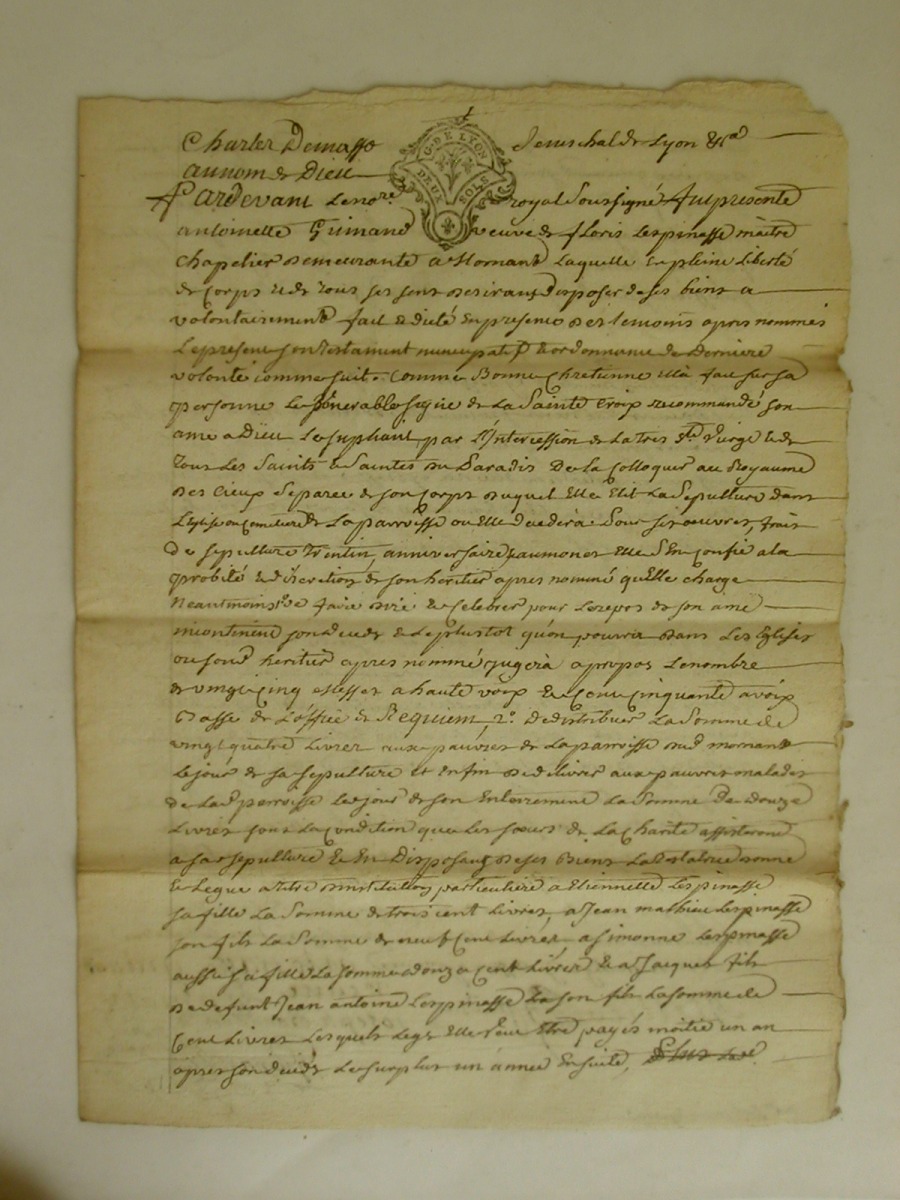 Charles Demasso Seneschal de Lyon &ca
G. DE LYON
DEUX SOLS
au nom de Dieu
Pardevant le nore royal soussigné fut présente
antoinette Guimand veuve de floris Lespinasse maitre
chapelier demeurante a Mornant laquelle en pleine Liberté
de corps & de tous ses sens desirant disposer de ses biens a
volontairement fait & dicté en presence des temoins apres nommés
Le present son testament nuncupatif & ordonnance de derniere
volonté comme suit. Comme Bonne Chretienne ella fait sur sa
personne le vénérable signe de La Sainte Croix recommandé son
ame a Dieu Le supliant par L'Intercession de la tres Ste Vierge & de
tous Les Saints & Saintes du Paradis De la Colloquer au Royaume
des Cieux Separee de son Corps duquel Elle Elit La Sepulture dans
L'Eglise ou Cemetiere de La parroisse ou Elle decedera. Pour ses oeuvres, frais
de sepulture Trentin, anniversaire & aumones Elle s'En confie a la
probité & discretion de son heritier apres nommé qu'Elle charge
Neantmoins 1º de faire dire & Celebrer pour Le repos de son ame
incontinent son decés & Le plustot qu'on pourra dans Les Eglises
ou sond heritier apres nommé jugera apropos Le nombre
de vingt cinq Messes a haute voix & Cent Cinquante a voix
Basse de L'office de Requiem, 2º De distribuer La Somme de
vingt quatre Livres aux pauvres de La parroisse dud mornant
Le jour de sa sepulture et enfin de delivrer aux pauvres malades
de Lad parroisse Le jour de son Enterrement La Somme De douze
Livres sous La condition que Les soeurs de La Charité assisteront
a sa sepulture & En Disposant de ses Biens La Testatrice donne
& Legue a titre d'institution particuliere a Etiennette Lespinasse
sa fille La Somme de trois cent Livres, a Jean mathieu Lespinasse
son fils La Somme de neuf Cent Livres, a Simonne Lespinasse
aussi sa fille La somme de douze Cent Livres & a Jacques fils
de defunt Jean antoine Lespinasse son fils La somme de
Cent Livres Lesquels Legs Elle veut Etre payés moitié un an
apres son decés Le surplus un année Ensuite,